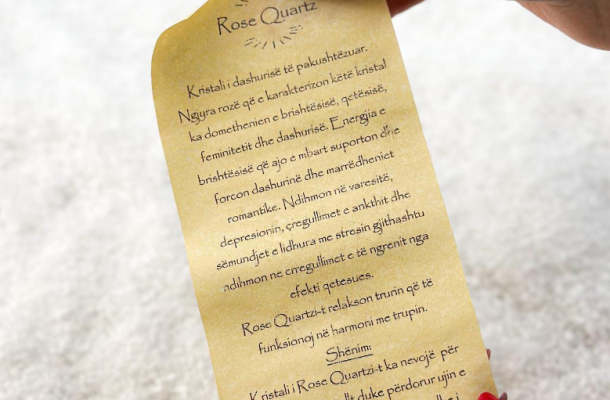 Rose Quartz
Kristali i dashurisë të pakushtëzuar.
Ngjyra rozë që e karakterizon këtë kristal
ka domethenien e brishtësisë, qetësisë,
feminitetit dhe dashurisë. Energjia e
brishtësisë që ajo e mbart suporton dhe
forcon dashurinë dhe marrëdheniet
romantike. Ndihmon në varesitë,
depresionin, çregullimet e ankthit dhe
sëmundjet e lidhura me stresin gjithashtu
ndihmon ne crregullimet e të ngrenit nga
efekti qetesues.
Rose Quartzi-t relakson trurin që të
funksionoj në harmoni me trupin.
Shënim:
Kristali i Rose Quartzi-t ka nevojë për
duke përdorur ujin e